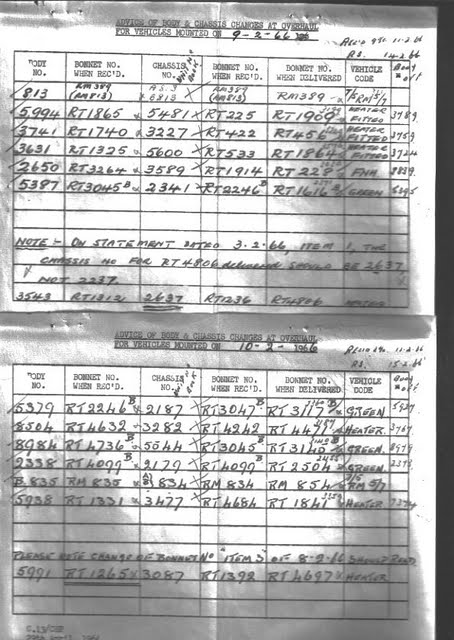 ADVICE OF BODY & CHASSIS CHANGES AT OVERHAUL
FOR VEHICLES MOUNTED ON 9-2-66
REC'D 11-2-66
R.S. 14-2-66
BODY NO. BONNET NO. WHEN REC'D. CHASSIS NO. BONNET NO. WHEN DELIVERED VEHICLE CODE
813 RM389 (RM813) 6813 RM389 (RM813) RM389
5994 RT1865 5481 RT225 RT1909 HEATER FITTED 3789
3741 RT1740 3227 RT422 RT456 HEATER FITTED 3759
3631 RT1325 5600 RT533 RT1864 HEATER FITTED 3724
2650 RT3264 3589 RT1914 RT228
5387 RT3045 B 2341 RT2246 B RT1616 GREEN
NOTE :- ON STATEMENT DATED 3.2.66, ITEM 1, THE
CHASSIS NO FOR RT4806 delivered SHOULD BE 2637
NOT 2237.
3543 RT1312 2637 RT1236 RT4806
ADVICE OF BODY & CHASSIS CHANGES AT OVERHAUL
FOR VEHICLES MOUNTED ON 10-2-1966
REC'D 11-2-66
R.S. 15-2-66
BODY NO. BONNET NO. WHEN REC'D. CHASSIS NO. BONNET NO. BONNET NO. WHEN DELIVERED VEHICLE CODE
5379 RT2246 B 2187 RT3047 B RT3117 B GREEN 5927
8504 RT4632 3282 RT4242 HEATER 3767
8984 RT4736 B 5544 RT3045 B RT3140 B GREEN
2338 RT4099 B 2179 RT4099 B RT2504 GREEN
B.835 RM835 834 RM834 RM854 RM 5/7
5938 RT1331 3477 RT4684 RT1841 HEATER
PLEASE NOTE CHANGE OF BONNET NO ITEM 3 OF 8-2-66 SHOULD READ
5991 RT1265 3087 RT1392 RT4697 HEATER